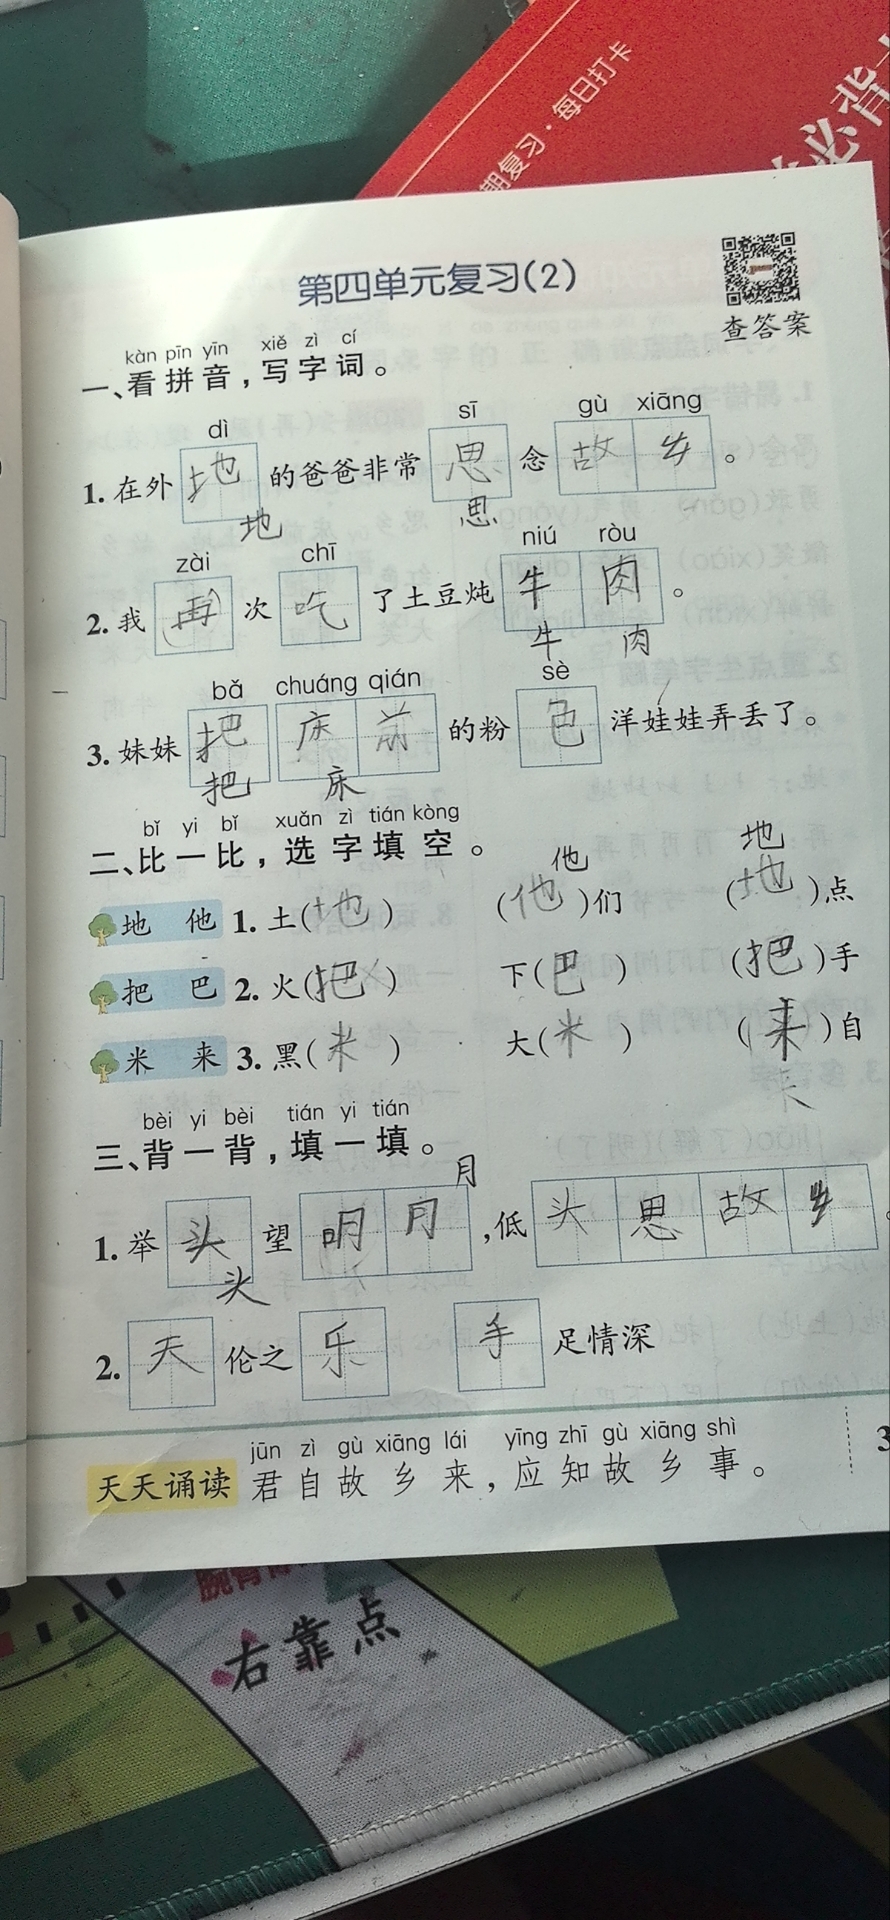 期复习·每日打卡
必背
第四单元复习(2)
查答案
kàn pīn yīn xiě zì cí
一、看拼音，写字词。
dì sī gù xiāng
1. 在外地的爸爸非常思念故乡。
地 思
zài chī niú ròu
2. 我再次吃了土豆炖牛肉。
牛 肉
bǎ chuáng qián sè
3. 妹妹把床前的粉色洋娃娃弄丢了。
把 床
bǐ yi bǐ xuǎn zì tián kòng
二、比一比，选字填空。
他 地
地 他 1. 土(地) (他)们 (地)点
把 巴 2. 火(把) 下(巴) (把)手
米 来 3. 黑(米) 大(米) (来)自
来
bèi yi bèi tián yi tián
三、背一背，填一填。
月
1. 举头望明月，低头思故乡。
头
2. 天伦之乐 手足情深
jūn zì gù xiāng lái yīng zhī gù xiāng shì
天天诵读 君自故乡来，应知故乡事。
3
右靠点